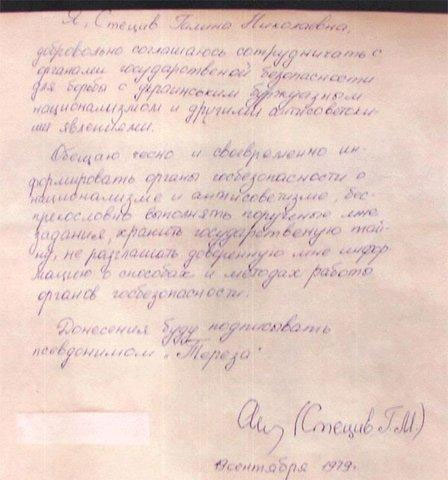 Я, Стецив Галина Николаевна,
добровольно соглашаюсь сотрудничать с
органами государственой безопасности
для борьбы с украинским буржуазным
национализмом и другими антисоветски-
ми явлениями.
Обещаю чесно и своевременно ин-
формировать органы госбезопасности о
национализме и антисоветизме, бес-
прекословно выполнять порученые мне
задания, хранить государственую тай-
ну, не разглашать доверенную мне инфор
мацию о способах и методах работы
органов госбезопасности.
Донесения буду подписывать
псевдонимом „Тереза"
(Стецив Г.М.)
19 сентября 1979г.